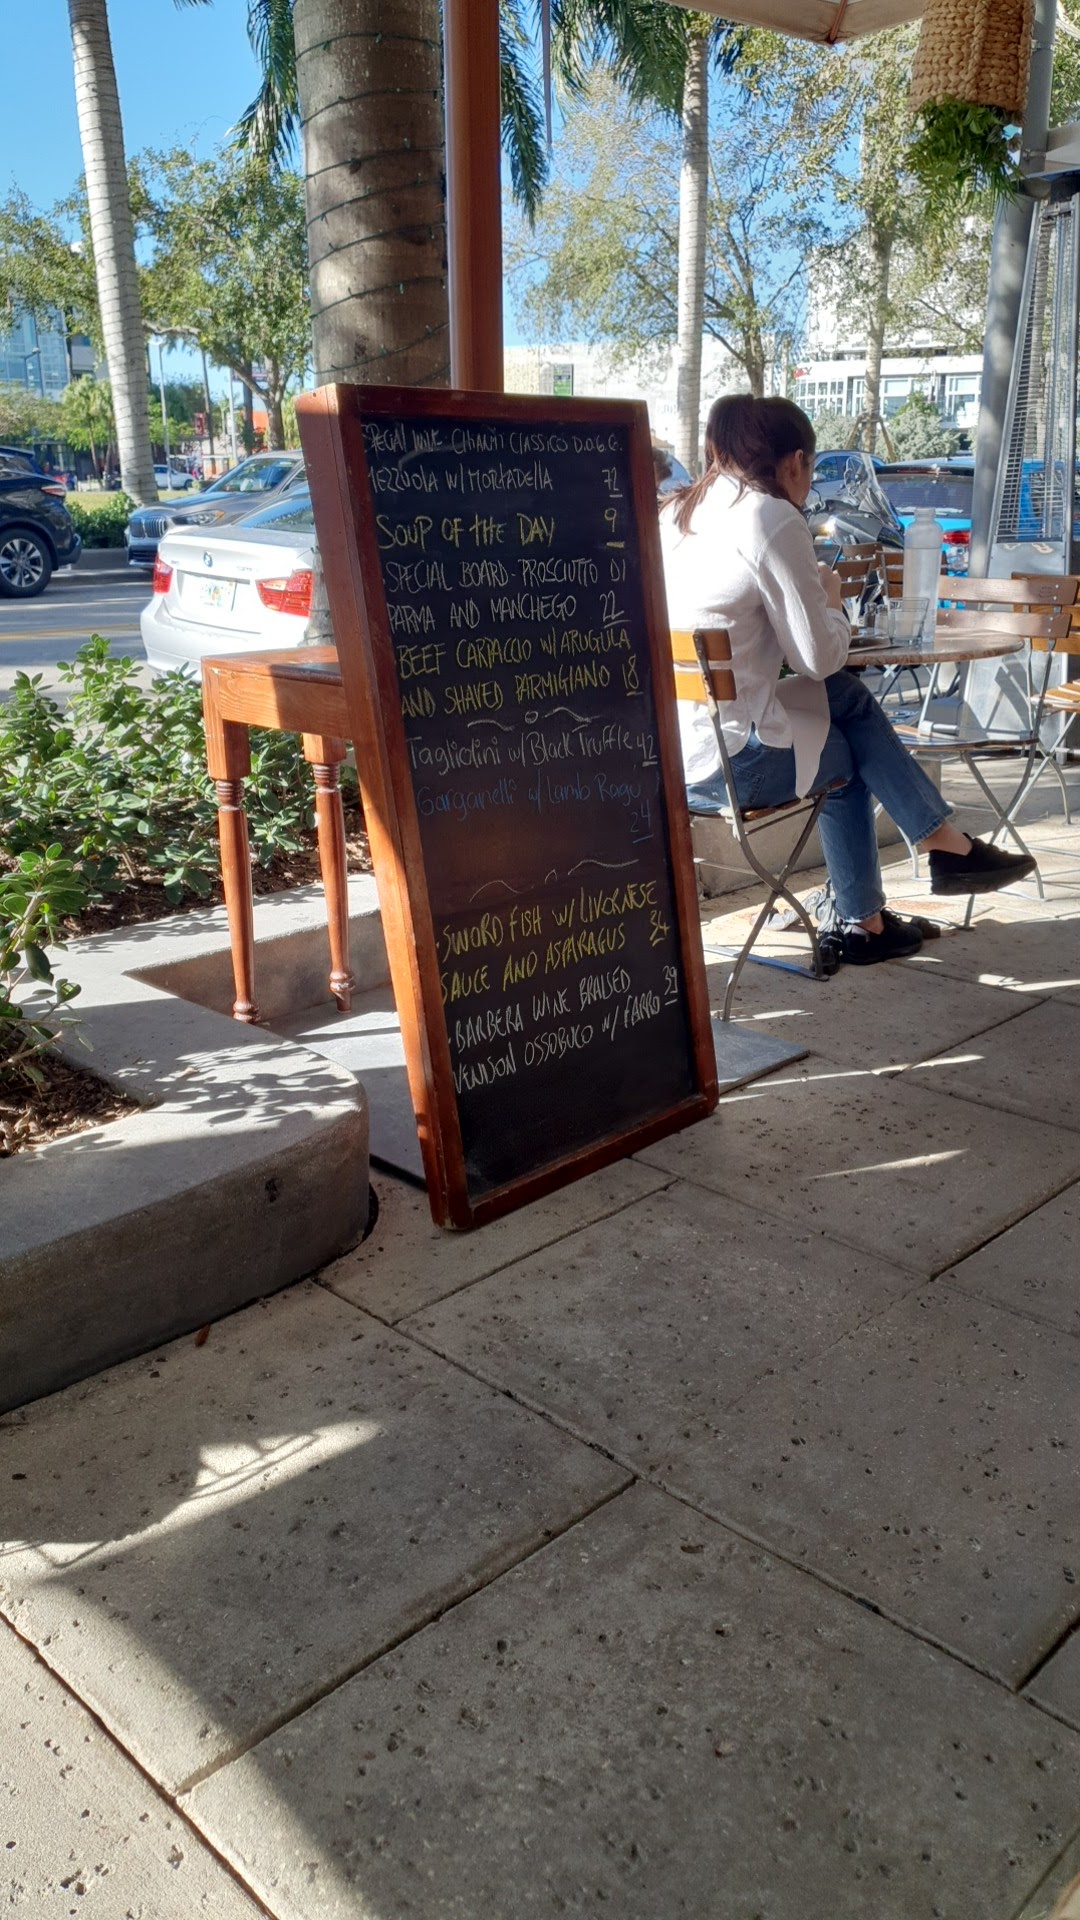 SPECIAL WINE CHIANTI CLASSICO D.O.G.C.
MEZZUOLA W/ MORTADELLA 72
SOUP OF THE DAY 9
·SPECIAL BOARD-PROSCIUTTO DI
PARMA AND MANCHEGO 22
BEEF CARPACCIO W/ARUGULA
AND SHAVED PARMIGIANO 18
Tagliolini w/ Black Truffle 42
Garganelli w/ Lamb Ragù
24
·SWORD FISH W/ LIVORNESE
SAUCE AND ASPARAGUS 34
·BARBERA WINE BRAISED 39
VENISON OSSOBUCO W/ FARRO